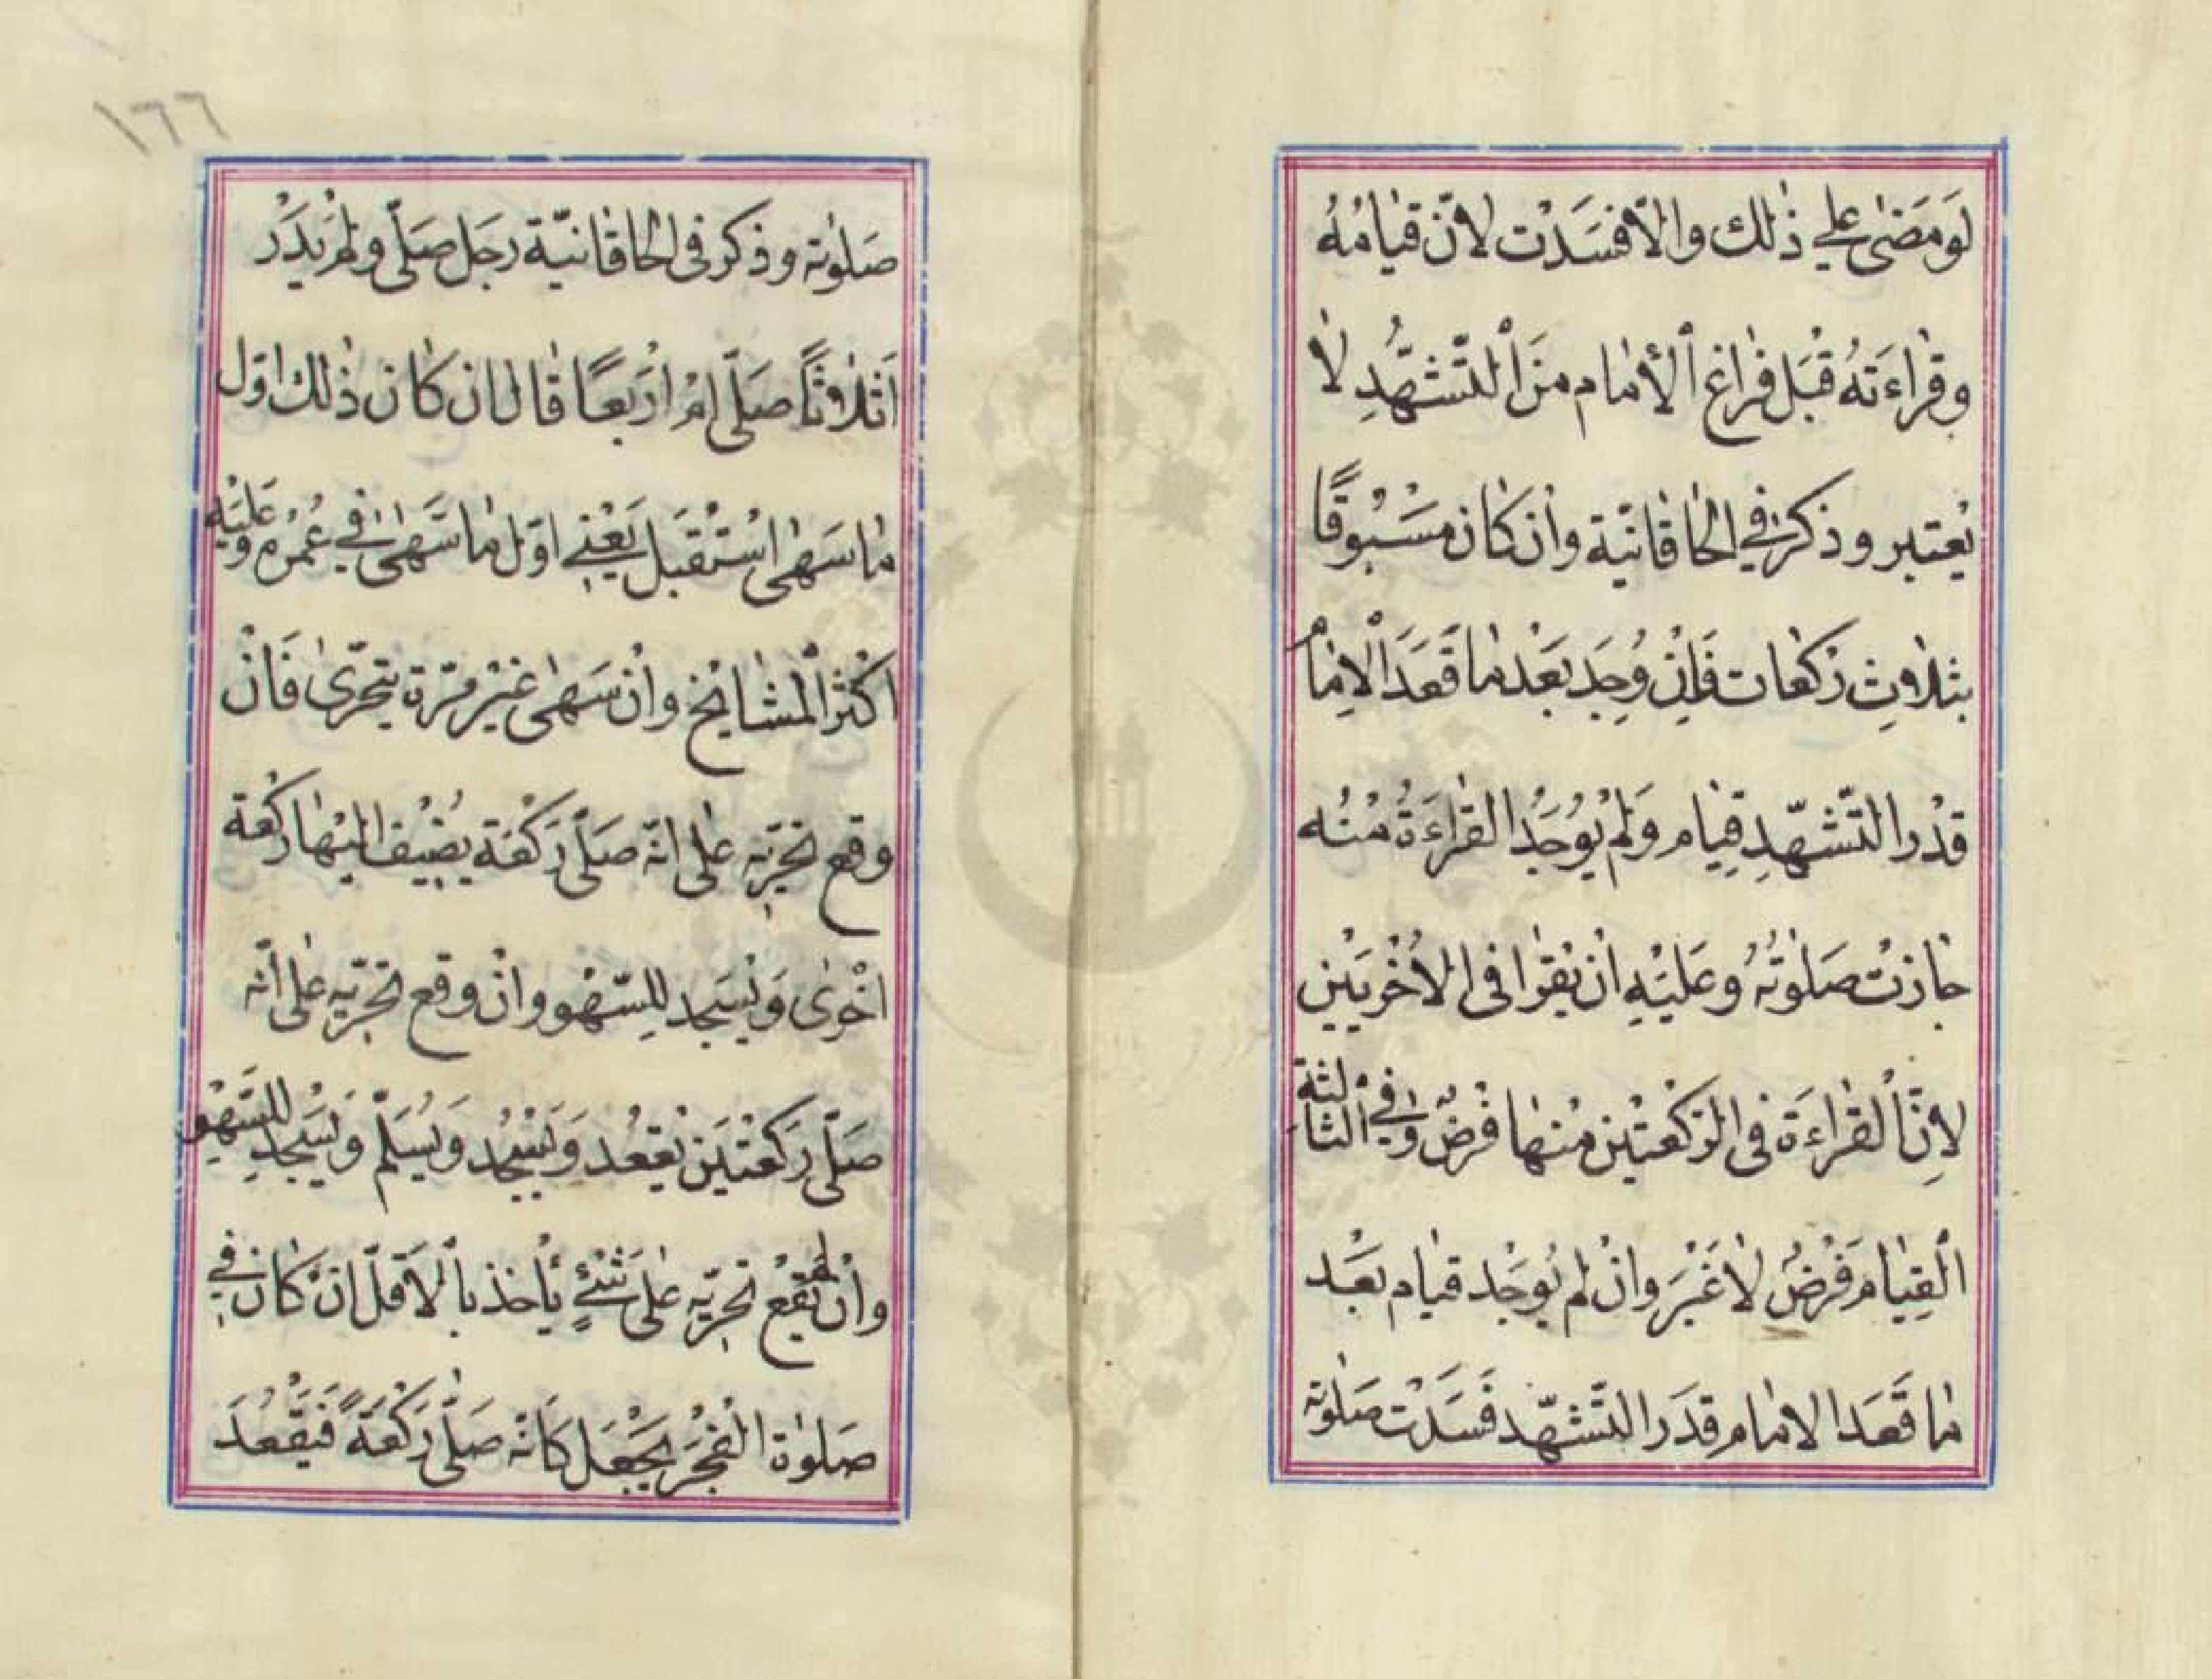 لَوَمَضىٰ علي ذٰلك والّا فسَدَت لانّ قيٰامُهُ
وقرٰاءَتهُ قبَل فرٰاغ الأمام منَ التّشهُّدِ لا
يُعتبر وذكرَ في الخاقانيّة وأن كان مسَبُوقًا
بثلاثِ ركعات فاِن وُجِدَ بَعْد مٰا قَعَدَ الاِمٰام
قدْر التّشهّدِ قيام وَلم يُوجَدُ القراءَةُ منُه
جٰازتْ صَلوٰتُهُ وعَليَهِ ان يقرا في الاُخْريَيْن
لاِنَّ القرٰاءَة في الرّكعتيْن منْها فرْضٌ وفي الثالثة
القِيٰام فَرْضٌ لاٰ غَيْرَ وانْ لم يُوجَدْ قيٰام بَعْد
مٰا قَعَدَ الامٰام قدَر التّشهّد فَسَدَتْ صَلٰوته
١٦٦
صَلوٰته وذكر في الخاقانيّة رجَل صَلّى ولم يَدَرْ
اَثلاثًا صَلّى امْ ارْبَعًا قال ان كان ذٰلك اوّل
مٰا سَهى اسْتَقبَل يَعْنِي اوّل مٰا سَهىٰ في عُمْره وعَليْه
اكثر المشٰايخ وانْ سَهىٰ غيْر مَرّة يتحَرّىٰ فَانْ
وقع تحرّيه عَلىٰ انّه صَلّى رَكْعَة يُضيْف اليْهٰا ركْعة
اخْرىٰ وَيَسجد للِسّهْو وانْ وقع تحرّيه عَلىٰ انّه
صَلّى رَكعْتيَن يقعُد وَيتشهّد وَيُسَلّم وَيَسْجد للسَّهْوِ
وانْ لم يَقعْ تحرّيه عَلىٰ شَئٍ يأخذ بالاَقلّ انْ كان في
صَلوٰة الفجْر يجْعَل كَانّه صَلّى رَكعَةً فيَقْعُدَ